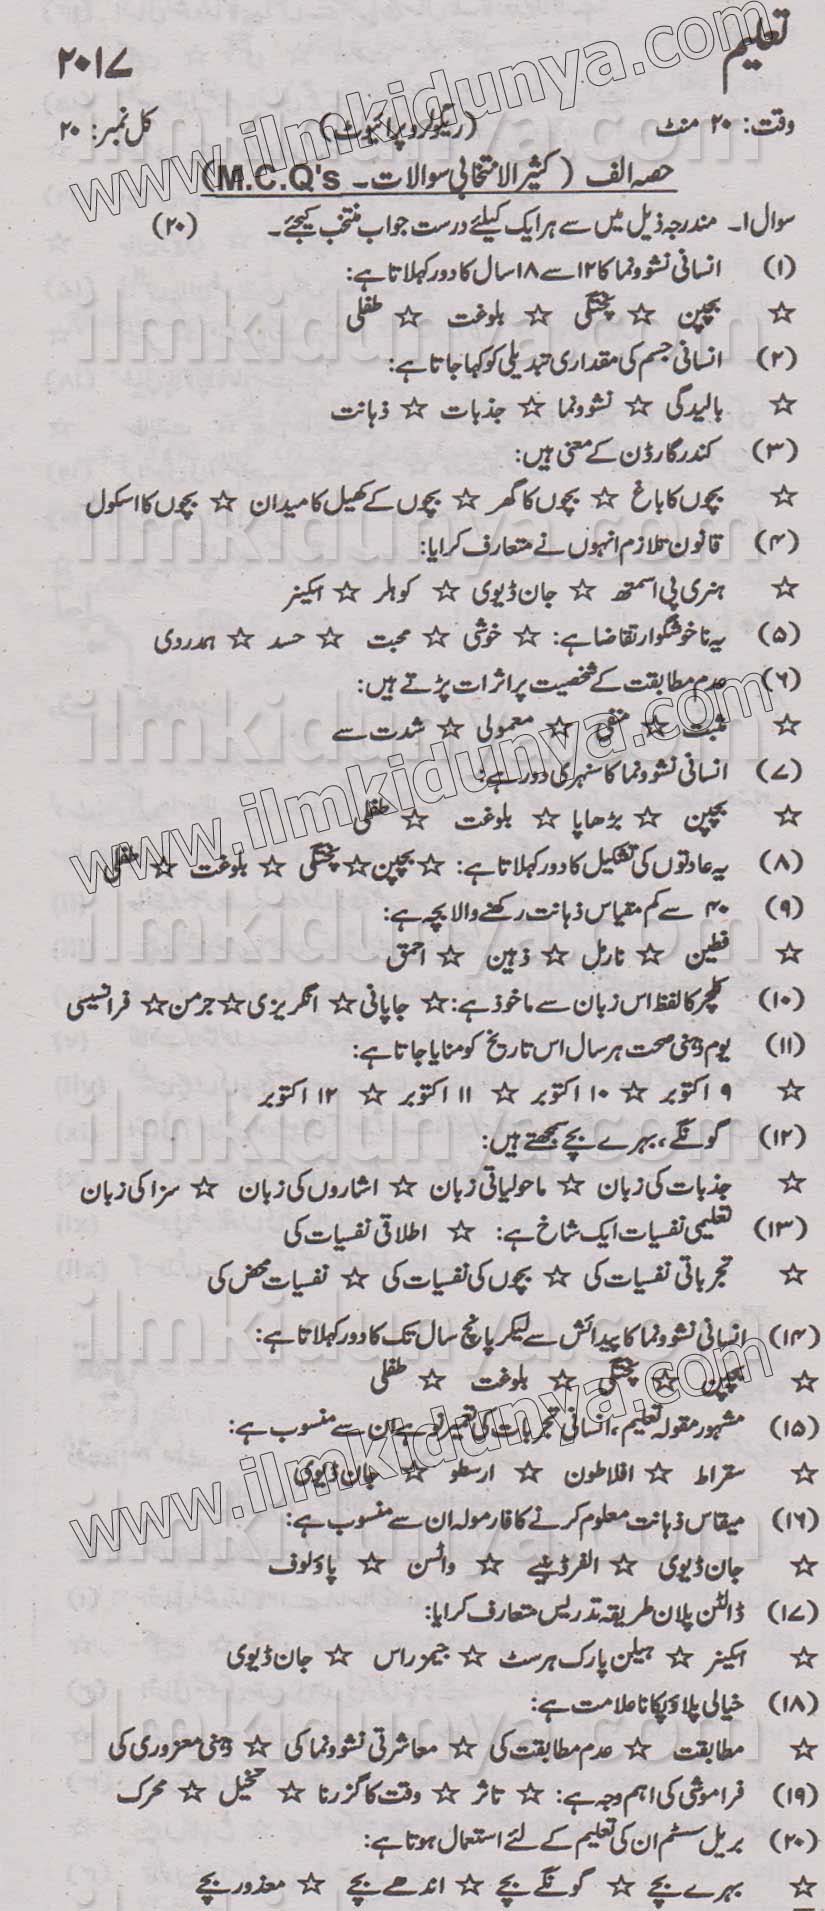 تعلیم
۲۰۱۷
وقت: ۲۰ منٹ (ریگولر و پرائیوٹ) کل نمبر: ۲۰
حصہ الف (کثیر الانتخابی سوالات۔ M.C.Q's)
سوال ۱۔ مندرجہ ذیل میں سے ہر ایک کیلئے درست جواب منتخب کیجئے۔ (۲۰)
(۱) انسانی نشوونما کا ۱۲ سے ۱۸ سال کا دور کہلاتا ہے:
☆ بچپن ☆ پختگی ☆ بلوغت ☆ طفلی
(۲) انسانی جسم کی مقداری تبدیلی کو کہا جاتا ہے:
☆ بالیدگی ☆ نشوونما ☆ جذبات ☆ ذہانت
(۳) کنڈرگارڈن کے معنی ہیں:
☆ بچوں کا باغ ☆ بچوں کا گھر ☆ بچوں کے کھیل کا میدان ☆ بچوں کا اسکول
(۴) قانون تلازم انہوں نے متعارف کرایا:
☆ ہنری پی اسمتھ ☆ جان ڈیوی ☆ کوہلر ☆ اسکینر
(۵) یہ ناخوشگوار تقاضا ہے: ☆ خوشی ☆ محبت ☆ حسد ☆ ہمدردی
(۶) عدم مطابقت کے شخصیت پر اثرات پڑتے ہیں:
☆ مثبت ☆ منفی ☆ معمولی ☆ شدت سے
(۷) انسانی نشوونما کا سنہری دور ہے:
☆ بچپن ☆ بڑھاپا ☆ بلوغت ☆ طفلی
(۸) یہ عادتوں کی تشکیل کا دور کہلاتا ہے: ☆ بچپن ☆ پختگی ☆ بلوغت ☆ طفلی
(۹) ۴۰ سے کم مقیاس ذہانت رکھنے والا بچہ ہے:
☆ فطین ☆ نارمل ☆ ذہین ☆ احمق
(۱۰) کلچر کا لفظ اس زبان سے ماخوذ ہے: ☆ جاپانی ☆ انگریزی ☆ جرمن ☆ فرانسیسی
(۱۱) یوم ذہنی صحت ہر سال اس تاریخ کو منایا جاتا ہے:
☆ ۹ اکتوبر ☆ ۱۰ اکتوبر ☆ ۱۱ اکتوبر ☆ ۱۲ اکتوبر
(۱۲) گونگے، بہرے بچے سمجھتے ہیں:
☆ جذبات کی زبان ☆ ماحولیاتی زبان ☆ اشاروں کی زبان ☆ سزا کی زبان
(۱۳) تعلیمی نفسیات ایک شاخ ہے: ☆ اطلاقی نفسیات کی
☆ تجرباتی نفسیات کی ☆ بچوں کی نفسیات کی ☆ نفسیات محض کی
(۱۴) انسانی نشوونما کا پیدائش سے لیکر پانچ سال تک کا دور کہلاتا ہے:
☆ بچپن ☆ پختگی ☆ بلوغت ☆ طفلی
(۱۵) مشہور مقولہ تعلیم، انسانی تجربات کی تعمیر نو ہے ان سے منسوب ہے:
☆ سقراط ☆ افلاطون ☆ ارسطو ☆ جان ڈیوی
(۱۶) میقاس ذہانت معلوم کرنے کا فارمولہ ان سے منسوب ہے:
☆ جان ڈیوی ☆ الفرڈ بینے ☆ واٹسن ☆ پاؤلوف
(۱۷) ڈالٹن پلان طریقہ تدریس متعارف کرایا:
☆ اسکینر ☆ ہیلن پارک ہرسٹ ☆ جیمز راس ☆ جان ڈیوی
(۱۸) خیالی پلاؤ پکانا علامت ہے:
☆ مطابقت ☆ عدم مطابقت کی ☆ معاشرتی نشوونما کی ☆ ذہنی معزوری کی
(۱۹) فراموشی کی اہم وجہ ہے: ☆ تاثر ☆ وقت کا گزرنا ☆ تخیل ☆ محرک
(۲۰) بریل سسٹم ان کی تعلیم کے لئے استعمال ہوتا ہے:
☆ بہرے بچے ☆ گونگے بچے ☆ اندھے بچے ☆ معذور بچے
www.ilmkidunya.com
www.ilmkidunya.com
www.ilmkidunya.com